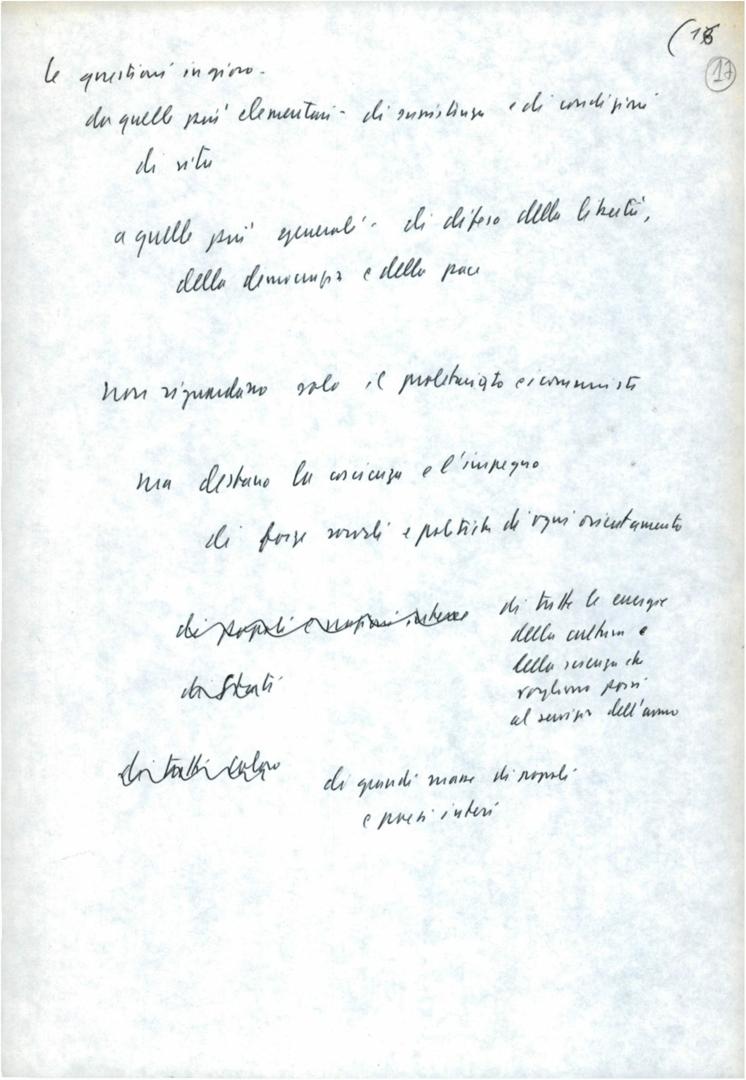 (16
17
le questioni in gioco -
da quelle più elementari - di sussistenza e di condizioni
di vita
a quelle più generali - di difesa della libertà,
della democrazia e della pace
non riguardano solo il proletariato e i comunisti
ma destano la coscienza e l'impegno
di forze sociali e politiche di ogni orientamento
di popoli e nazioni intere
di Stati
di tutti coloro
di tutte le energie
della cultura e
della scienza che
vogliono porsi
al servizio dell'uomo
di grandi masse di popoli
e paesi interi